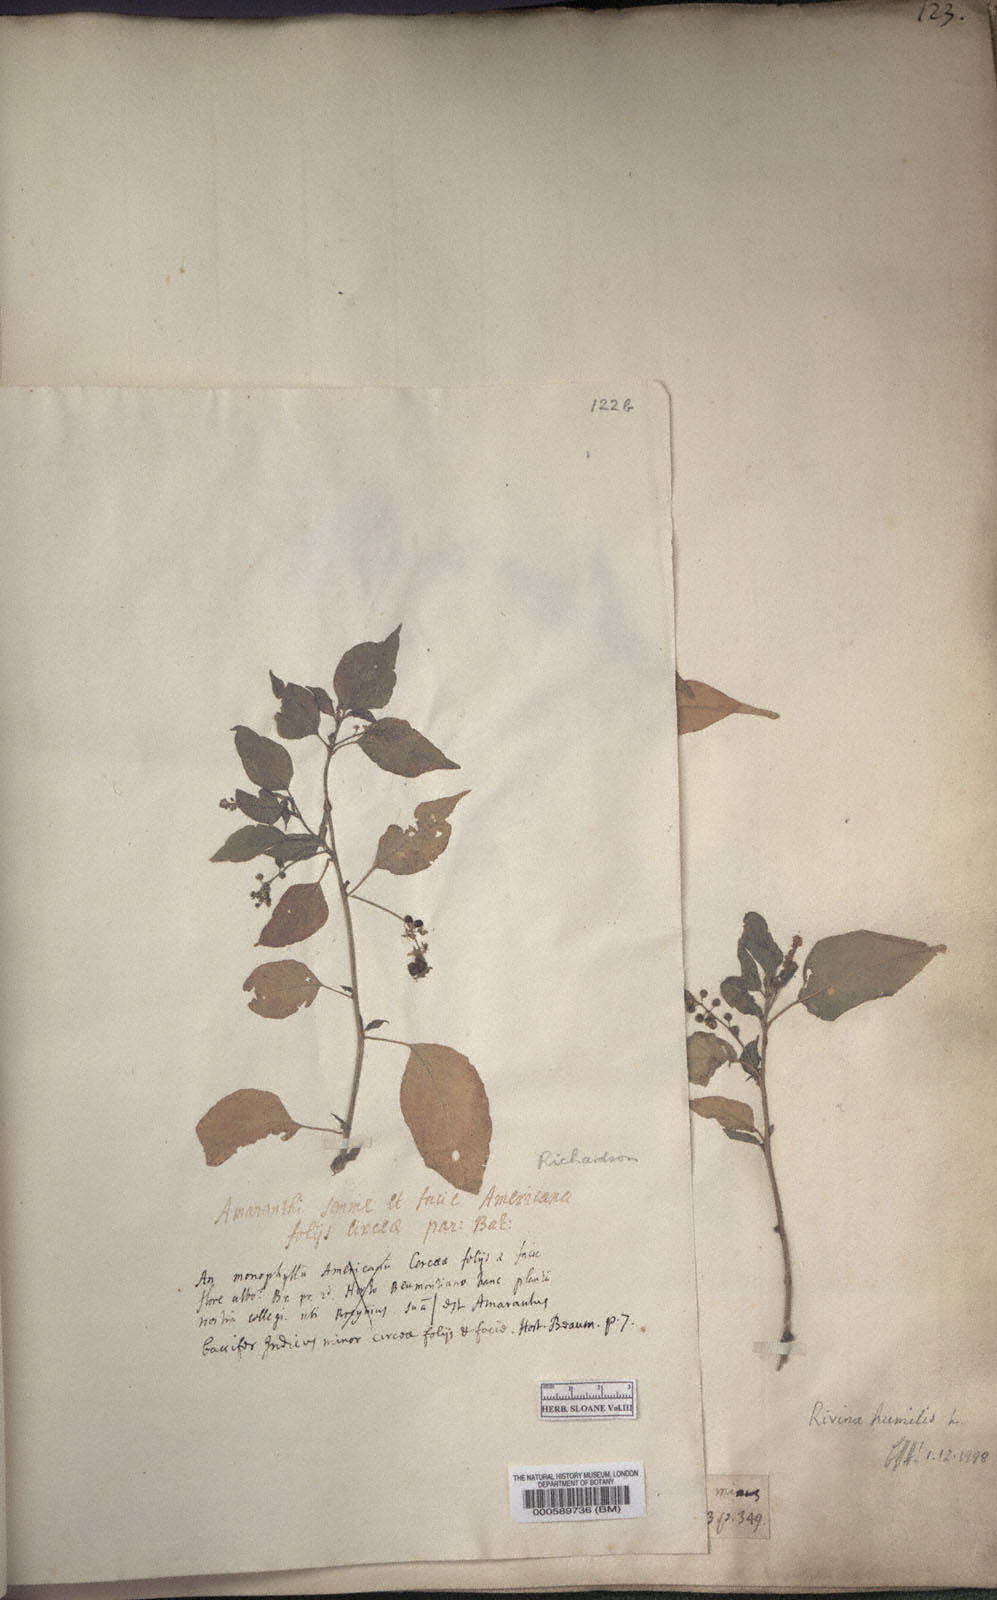 123.
122 b
Richardson
Amaranthi semine et facie Americana
folijs circeæ par: Bat:
An monophyllũ Circeæ folijs & facie
flore albo Br. pr. 2d. Beumontiano hanc plantã
nostrã collegi. ubi suã est Amarantus
baccifer Indicus minor circeæ folijs & facie. Hort. Beaum. p. 7.
HERB. SLOANE Vol.III
THE NATURAL HISTORY MUSEUM, LONDON
DEPARTMENT OF BOTANY
000589736 (BM)
Rivina humilis L.
1.12.1998
minus
3 p. 349